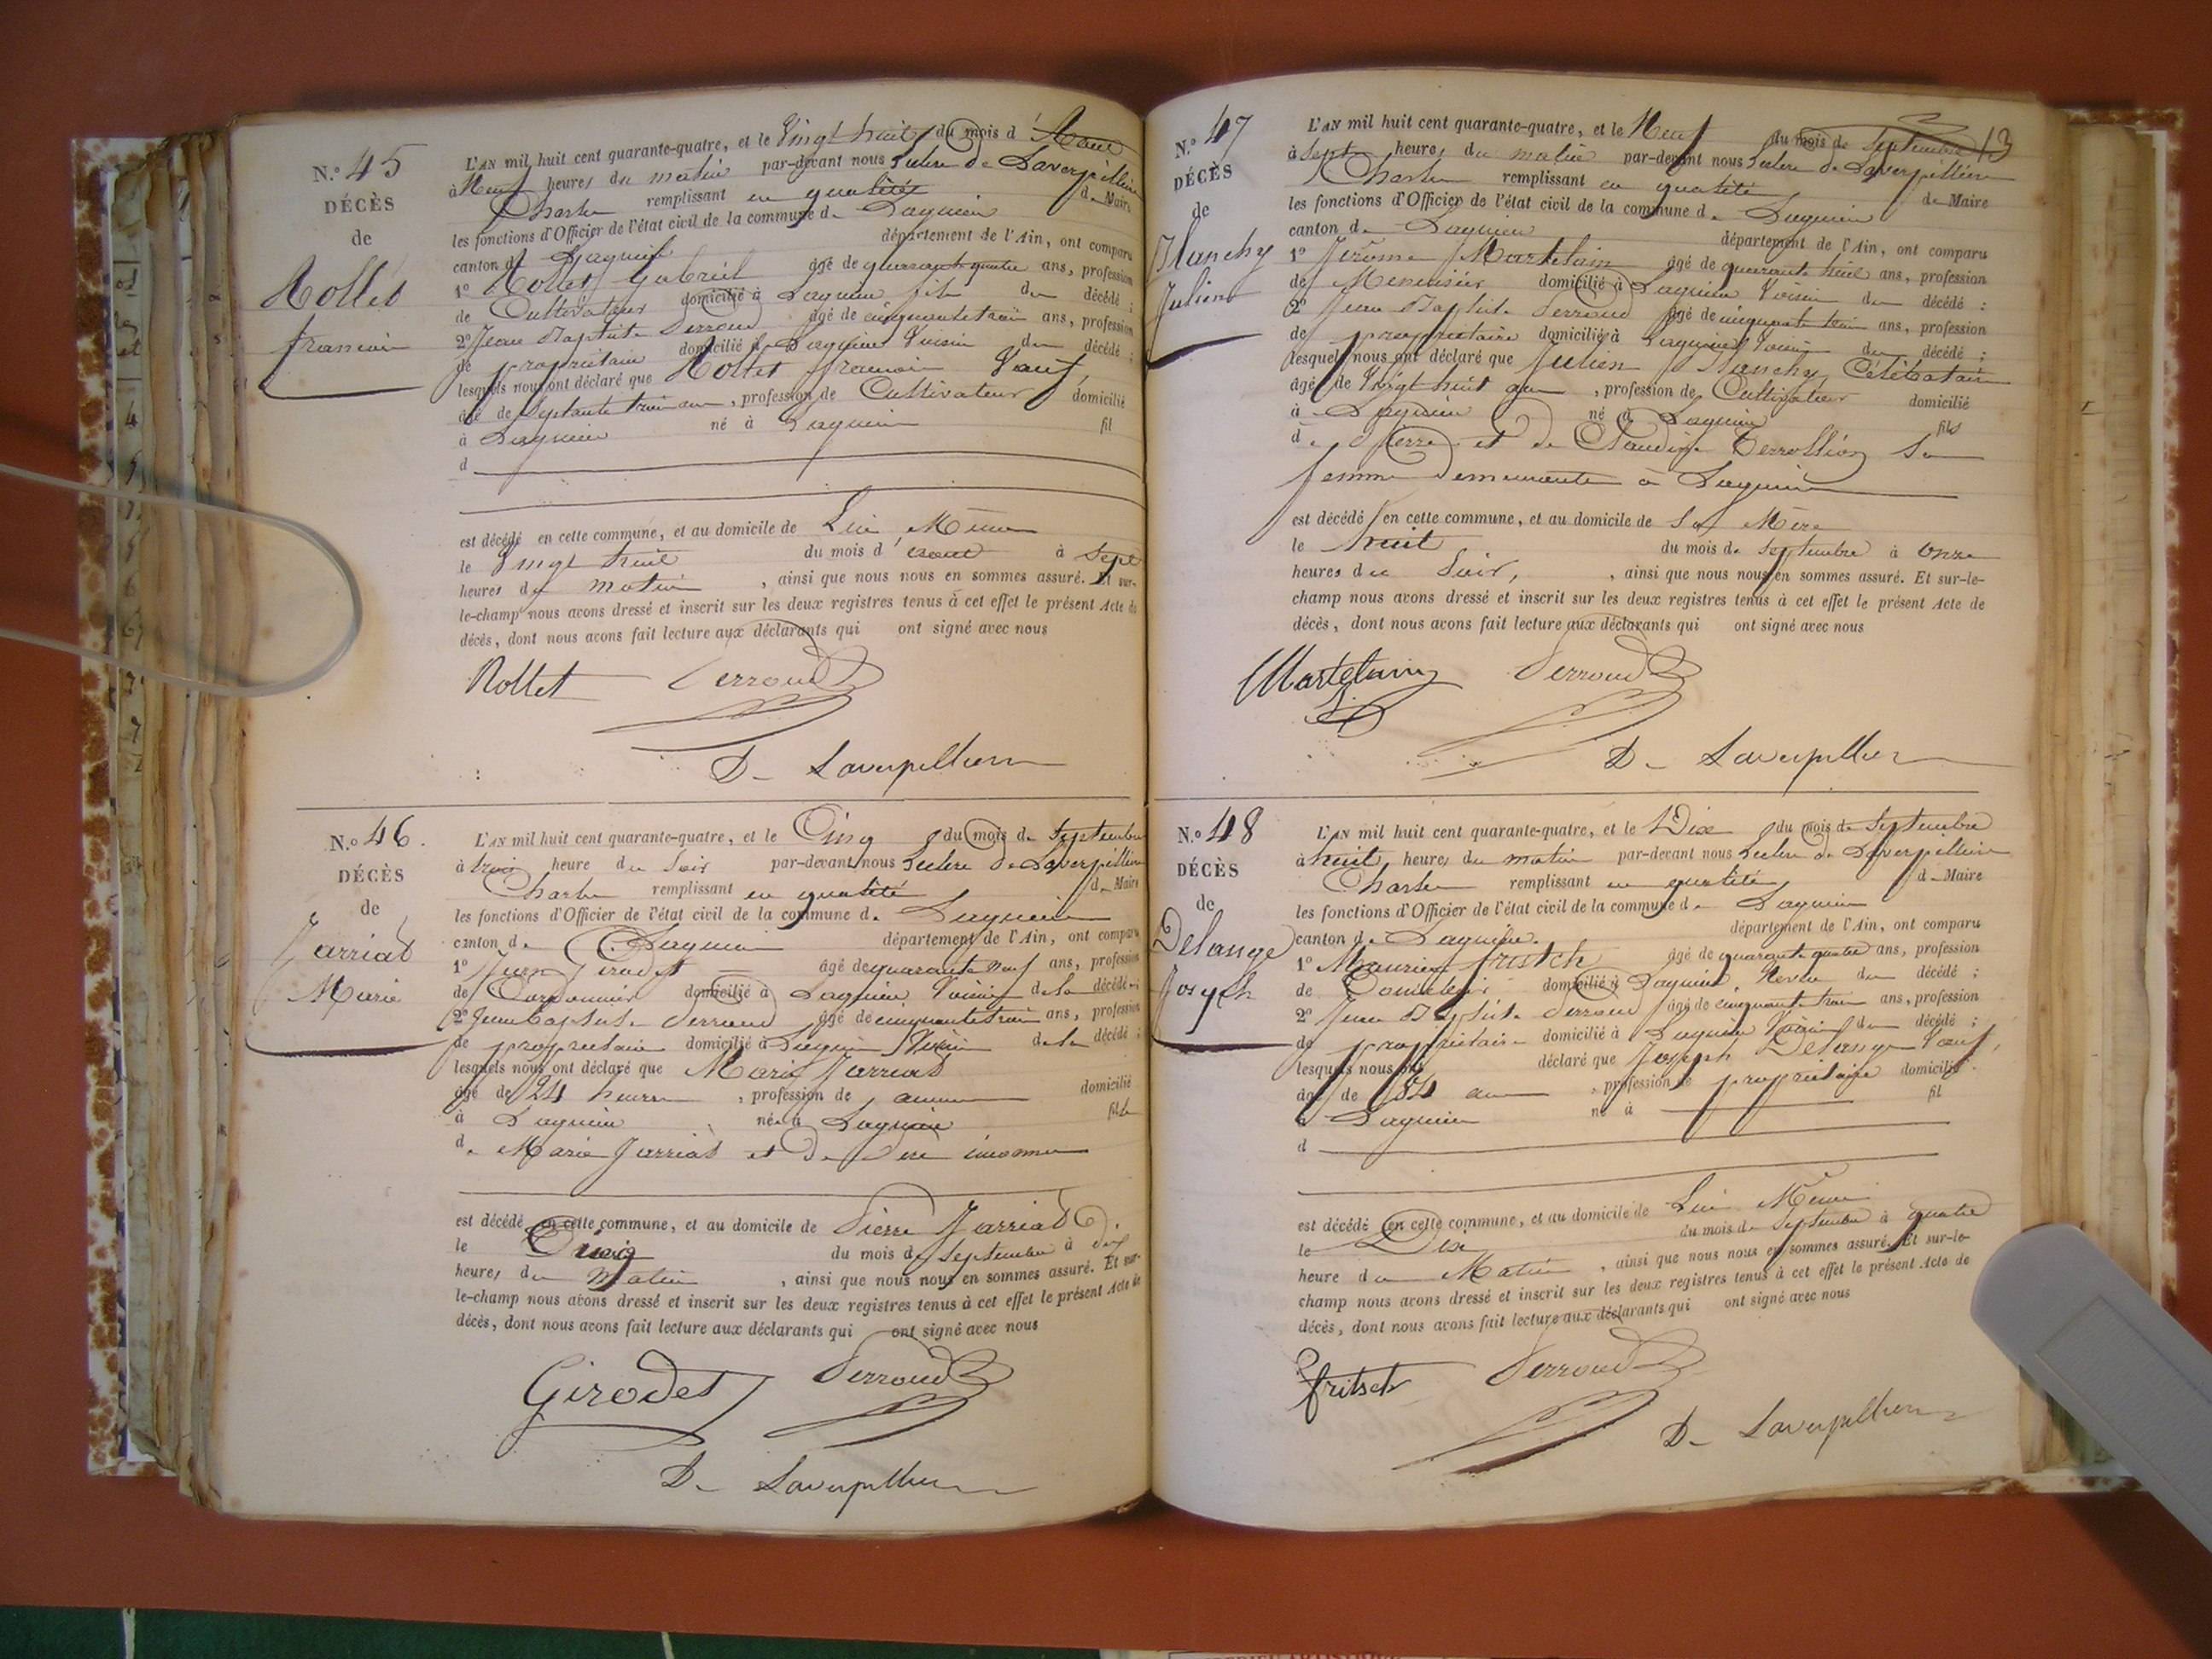 N.° 45
DÉCÈS
de
Rollet
francois
L'AN mil huit cent quarante-quatre, et le Vingt huit du mois d'Aout
à Neuf heures du matin par-devant nous de Laverpilliere
Charles remplissant en qualité de Maire
les fonctions d'Officier de l'état civil de la commune de Lagnieu
canton de Lagnieu département de l'Ain, ont comparu
1° Rollet Gabriel âgé de quarante quatre ans, profession
de Cultivateur domicilié à Lagnieu fils du décédé ;
2° Jean Baptiste Perroud âgé de cinquante trois ans, profession
de propriétaire domicilié à Lagnieu Voisin du décédé ;
lesquels nous ont déclaré que Rollet francois Veuf,
âgé de Septante trois ans, profession de Cultivateur domicilié
à Lagnieu né à Lagnieu fil
d
est décédé en cette commune, et au domicile de Lui Même
le Vingt huit du mois d'aout à Sept
heures du matin, ainsi que nous nous en sommes assuré. Et sur-
le-champ nous avons dressé et inscrit sur les deux registres tenus à cet effet le présent Acte de
décès, dont nous avons fait lecture aux déclarants qui ont signé avec nous
Rollet Perroud
De Laverpilliere
N.° 46.
DÉCÈS
de
Jarriat
Marie
L'AN mil huit cent quarante-quatre, et le Cinq du mois de Septembre
à trois heure du Soir par-devant nous de Laverpilliere
Charles remplissant en qualité de Maire
les fonctions d'Officier de l'état civil de la commune de Lagnieu
canton de Lagnieu département de l'Ain, ont comparu
1° Jean Girodet âgé de quarante neuf ans, profession
de Cordonnier domicilié à Lagnieu Voisin de la décédée
2° Jean Baptiste Perroud âgé de cinquante trois ans, profession
de propriétaire domicilié à Lagnieu Voisin de la décédé ;
lesquels nous ont déclaré que Marie Jarriat
âgé de 24 heures, profession de aucune domicilié
à Lagnieu née à Lagnieu fille
de Marie Jarriat et de Père inconnu
est décédé en cette commune, et au domicile de Pierre Jarriat
le Cinq du mois de Septembre à dix
heures du Matin, ainsi que nous nous en sommes assuré. Et sur-
le-champ nous avons dressé et inscrit sur les deux registres tenus à cet effet le présent Acte de
décès, dont nous avons fait lecture aux déclarants qui ont signé avec nous
Girodet Perroud
De Laverpilliere
13
N.° 47
DÉCÈS
de
Planchy
Julien
L'AN mil huit cent quarante-quatre, et le Neuf du mois de Septembre
à Sept heures du matin par-devant nous de Laverpilliere
Charles remplissant en qualité de Maire
les fonctions d'Officier de l'état civil de la commune de Lagnieu
canton de Lagnieu département de l'Ain, ont comparu
1° Jérôme Martelain âgé de quarante huit ans, profession
de Menuisier domicilié à Lagnieu Voisin du décédé :
2° Jean Baptiste Perroud âgé de cinquante trois ans, profession
de propriétaire domicilié à Lagnieu Voisin du décédé ;
lesquels nous ont déclaré que Julien Planchy Célébataire
âgé de Vingt huit ans, profession de Cultivateur domicilié
à Lagnieu né à Lagnieu fils
de Pierre et de Claudine Perrollion Sa
femme demeurante à Lagnieu
est décédé en cette commune, et au domicile de Sa Mère
le huit du mois de Septembre à Onze
heures du Soir, ainsi que nous nous en sommes assuré. Et sur-le-
champ nous avons dressé et inscrit sur les deux registres tenus à cet effet le présent Acte de
décès, dont nous avons fait lecture aux déclarants qui ont signé avec nous
Martelain Perroud
De Laverpilliere
N.° 48
DÉCÈS
de
Delange
Joseph
L'AN mil huit cent quarante-quatre, et le Dix du mois de Septembre
à huit heures du matin par-devant nous de Laverpilliere
Charles remplissant en qualité de Maire
les fonctions d'Officier de l'état civil de la commune de Lagnieu
canton de Lagnieu département de l'Ain, ont comparu
1° Maurice fritsch âgé de quarante quatre ans, profession
de domicilié à Lagnieu Neveu du décédé ;
2° Jean Baptiste Perroud âgé de cinquante trois ans, profession
de propriétaire domicilié à Lagnieu Voisin du décédé ;
lesquels nous ont déclaré que Joseph Delange Veuf,
âgé de 84 ans, profession de propriétaire domicilié
à Lagnieu né à fil
d
est décédé en cette commune, et au domicile de Lui Même
le Dix du mois de Septembre à quatre
heure du Matin, ainsi que nous nous en sommes assuré. Et sur-le-
champ nous avons dressé et inscrit sur les deux registres tenus à cet effet le présent Acte de
décès, dont nous avons fait lecture aux déclarants qui ont signé avec nous
fritsch Perroud
De Laverpilliere